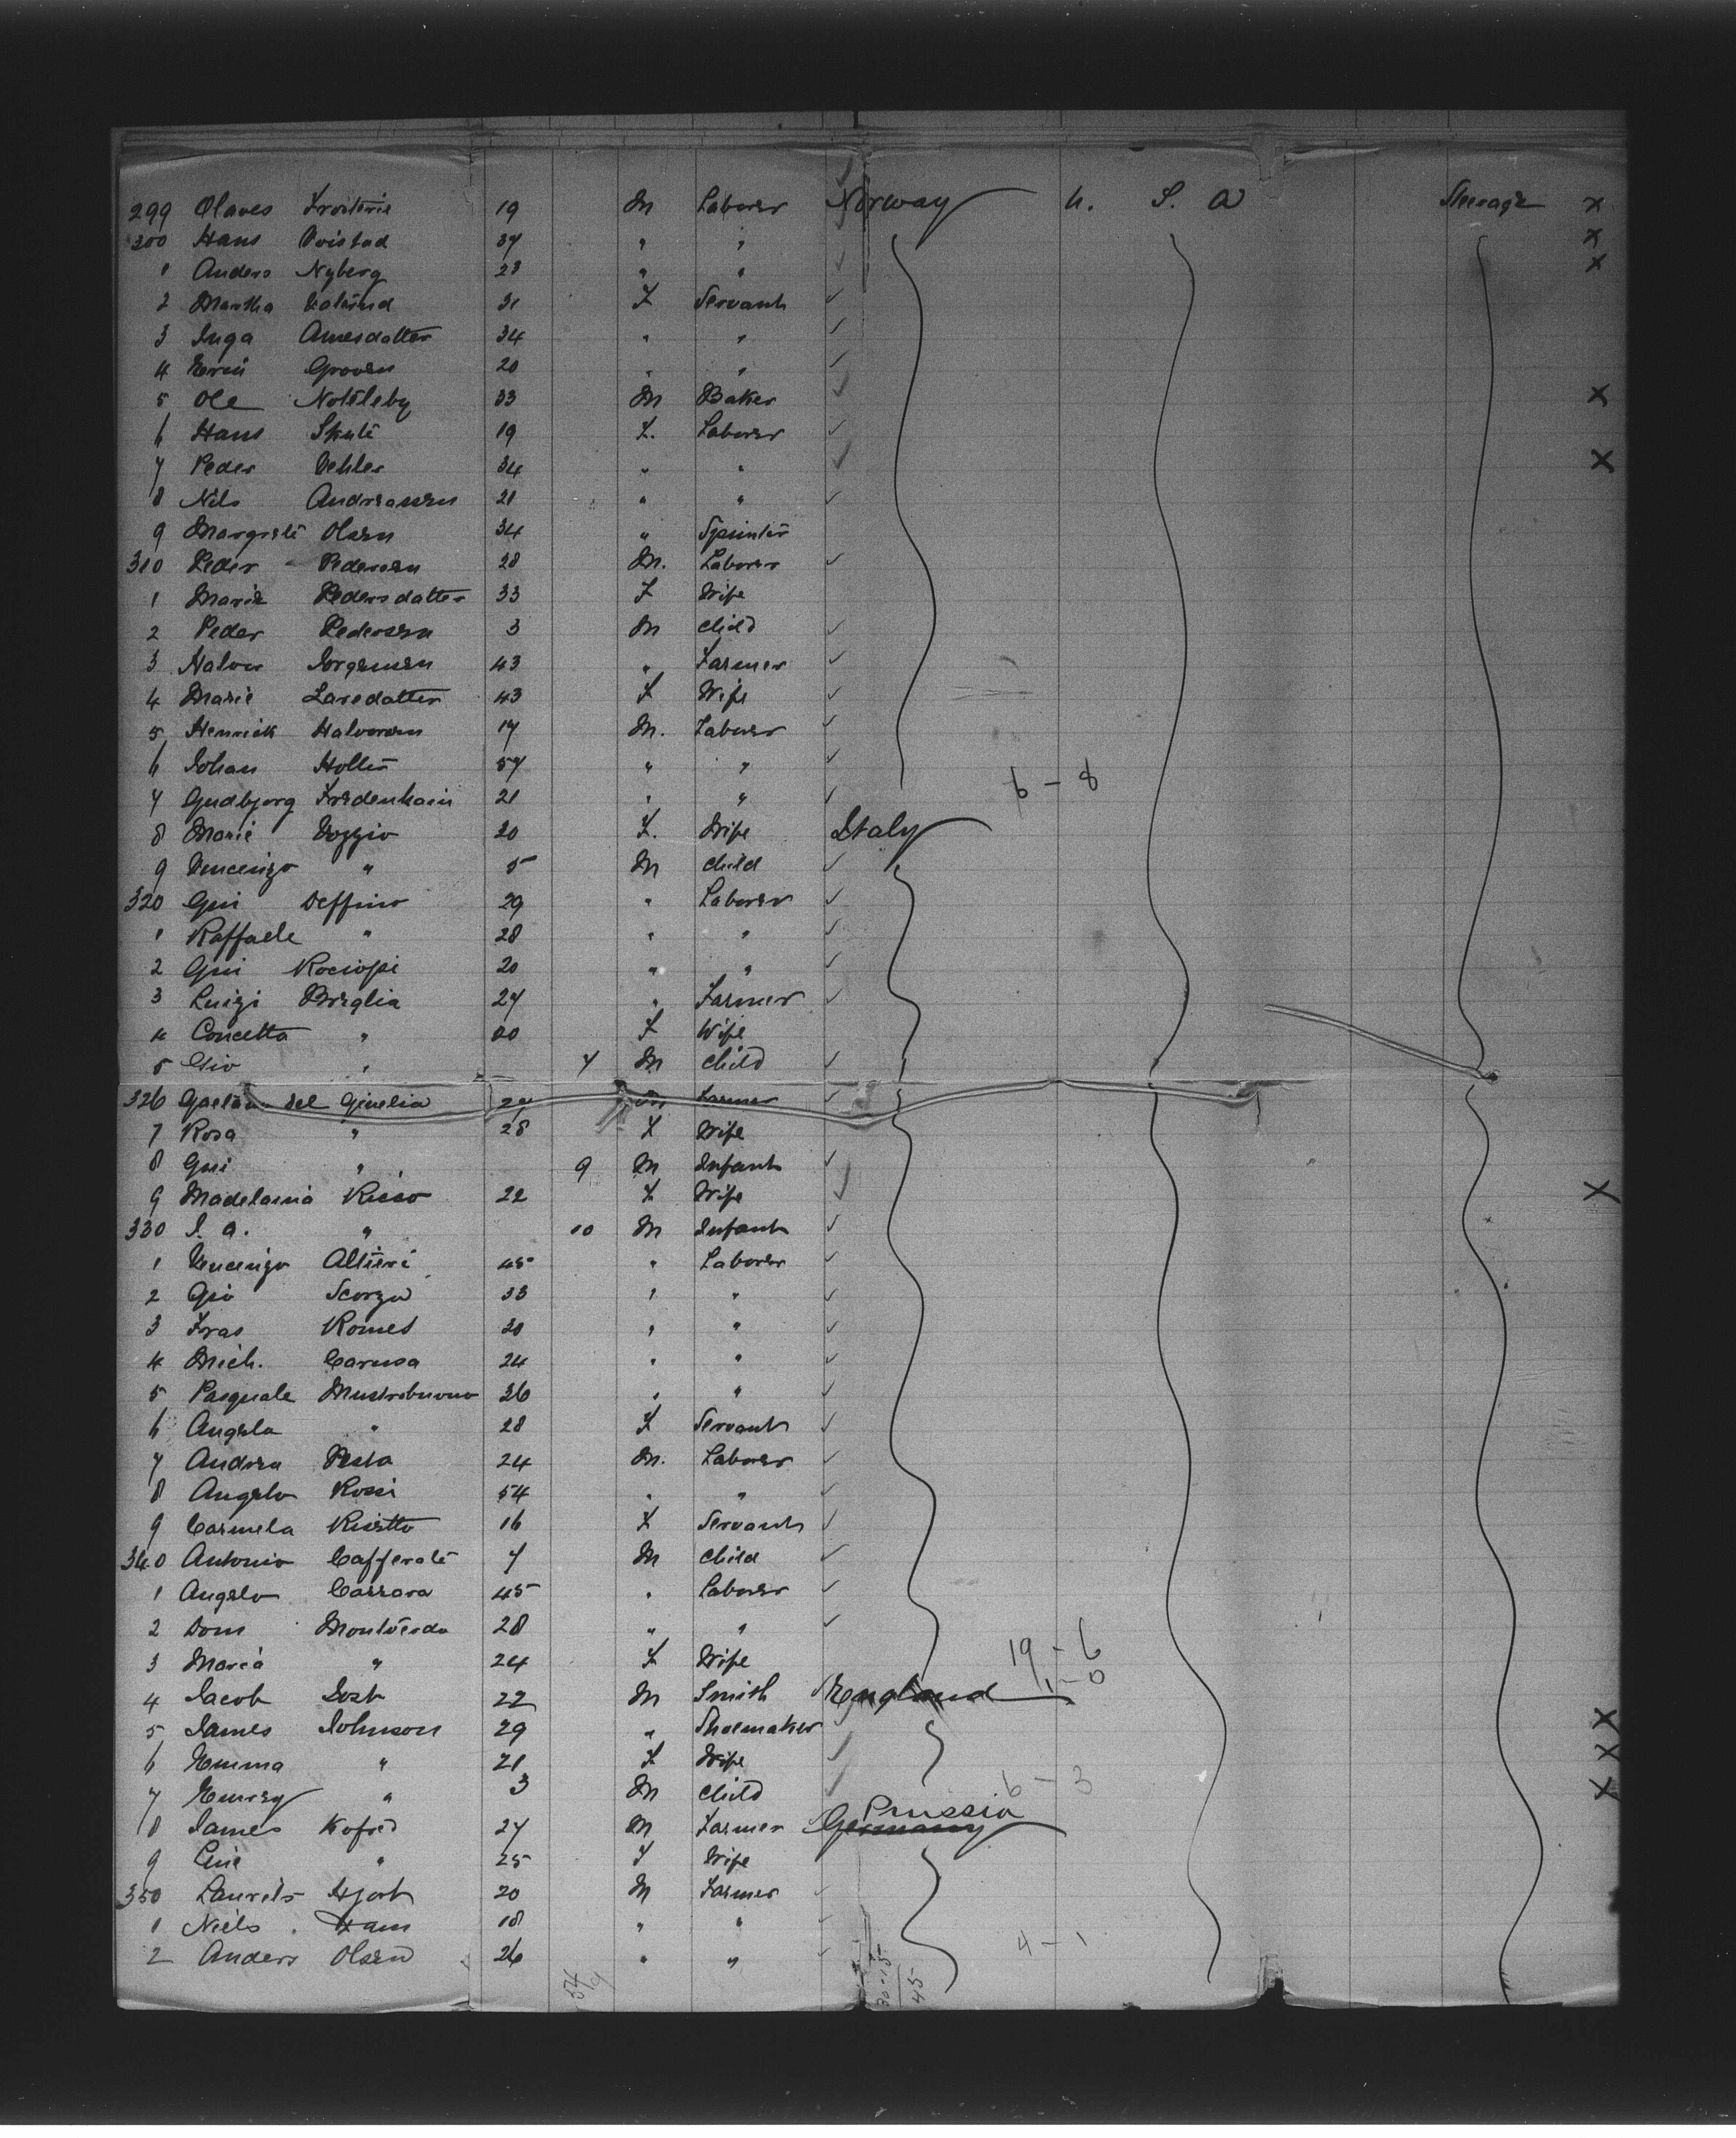 299 Olaves 19 M Laborer Norway U. S. A Steerage x
300 Hans 37 " " x
1 Anders Nyberg 23 " " x
2 Martha 31 F Servant
3 Inga Arnesdatter 34 " "
4 20 " "
5 Ole Notsleby 33 M Baker x
6 Hans 19 F. Laborer
7 Peder 34 " " x
8 Nils Andreasen 21 " "
9 Margrete Olsen 34 " Spinster
310 Peder Pedersen 28 M. Laborer
1 Marie Pedersdatter 33 F Wife
2 Peder Pedersen 3 M Child
3 Halvor Jorgensen 43 " Farmer
4 Marie Larsdatter 43 F Wife
5 Henrick Halvorsen 17 M. Laborer
6 Johan Holter 57 " "
7 Gudbjorg 21 " " 6 - 8
8 Marie 20 F. Wife Italy
9 Vincenzo " 5 M Child
320 Gui Deffino 29 " Laborer
1 Raffaele " 28 " "
2 Gui 20 " "
3 Luizi Breglia 27 " Farmer
4 Concetta " 20 F Wife
5 Gio " 7 M Child
326 Gaetano del Giuelia M Farmer
7 Rosa " 28 F Wife
8 Gui " 9 M Infant
9 Madelaina Risso 22 F Wife X
330 J. a. " 10 M Infant
1 Vincenzo Altieri 45 " Laborer
2 Gio Scorza 33 " "
3 Fras Romes 30 " "
4 Mich. Carusa 24 " "
5 Pasquale 36 " "
6 Angela " 28 F Servant
7 Andrea Testa 24 M. Laborer
8 Angelo Rossi 54 " "
9 Carmela 16 F Servant
340 Antonio Cafferate 7 M Child
1 Angelo Carrara 45 " Laborer
2 Dom Montverda 28 " "
3 Maria " 24 F Wife 19 - 6
4 Jacob 22 M Smith England 1 - 0
5 James Johnson 29 " Shoemaker X
6 Emma " 21 F Wife X
7 " 3 M Child 6 - 3 X
8 James Kofoed 27 M Farmer Germany Prussia
9 Line " 25 F Wife
350 Laurets Hjort 20 M Farmer
1 Niels Ham 18 " "
2 Anders Olsen 26 " " 4 - 1
30-15
45